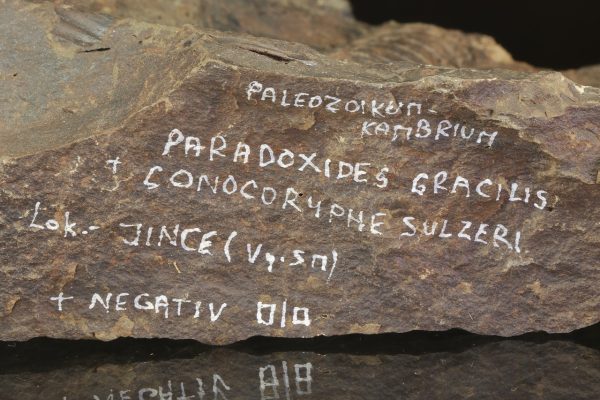 PALEOZOIKUM -
KAMBRIUM
PARADOXIDES GRACILIS
+ CONOCORYPHE SULZERI
Lok.- JINCE (Vy.sn)
+ NEGATIV